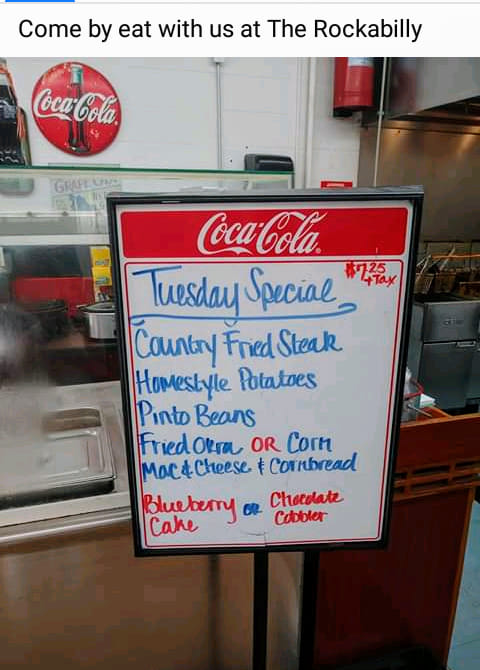 Come by eat with us at The Rockabilly
Coca-Cola
GRAPE
Coca-Cola
Tuesday Special
$7.25
+Tax
Country Fried Steak
Homestyle Potatoes
Pinto Beans
Fried Okra OR Corn
Mac & Cheese & Cornbread
Blueberry or Chocolate
Cake Cobbler